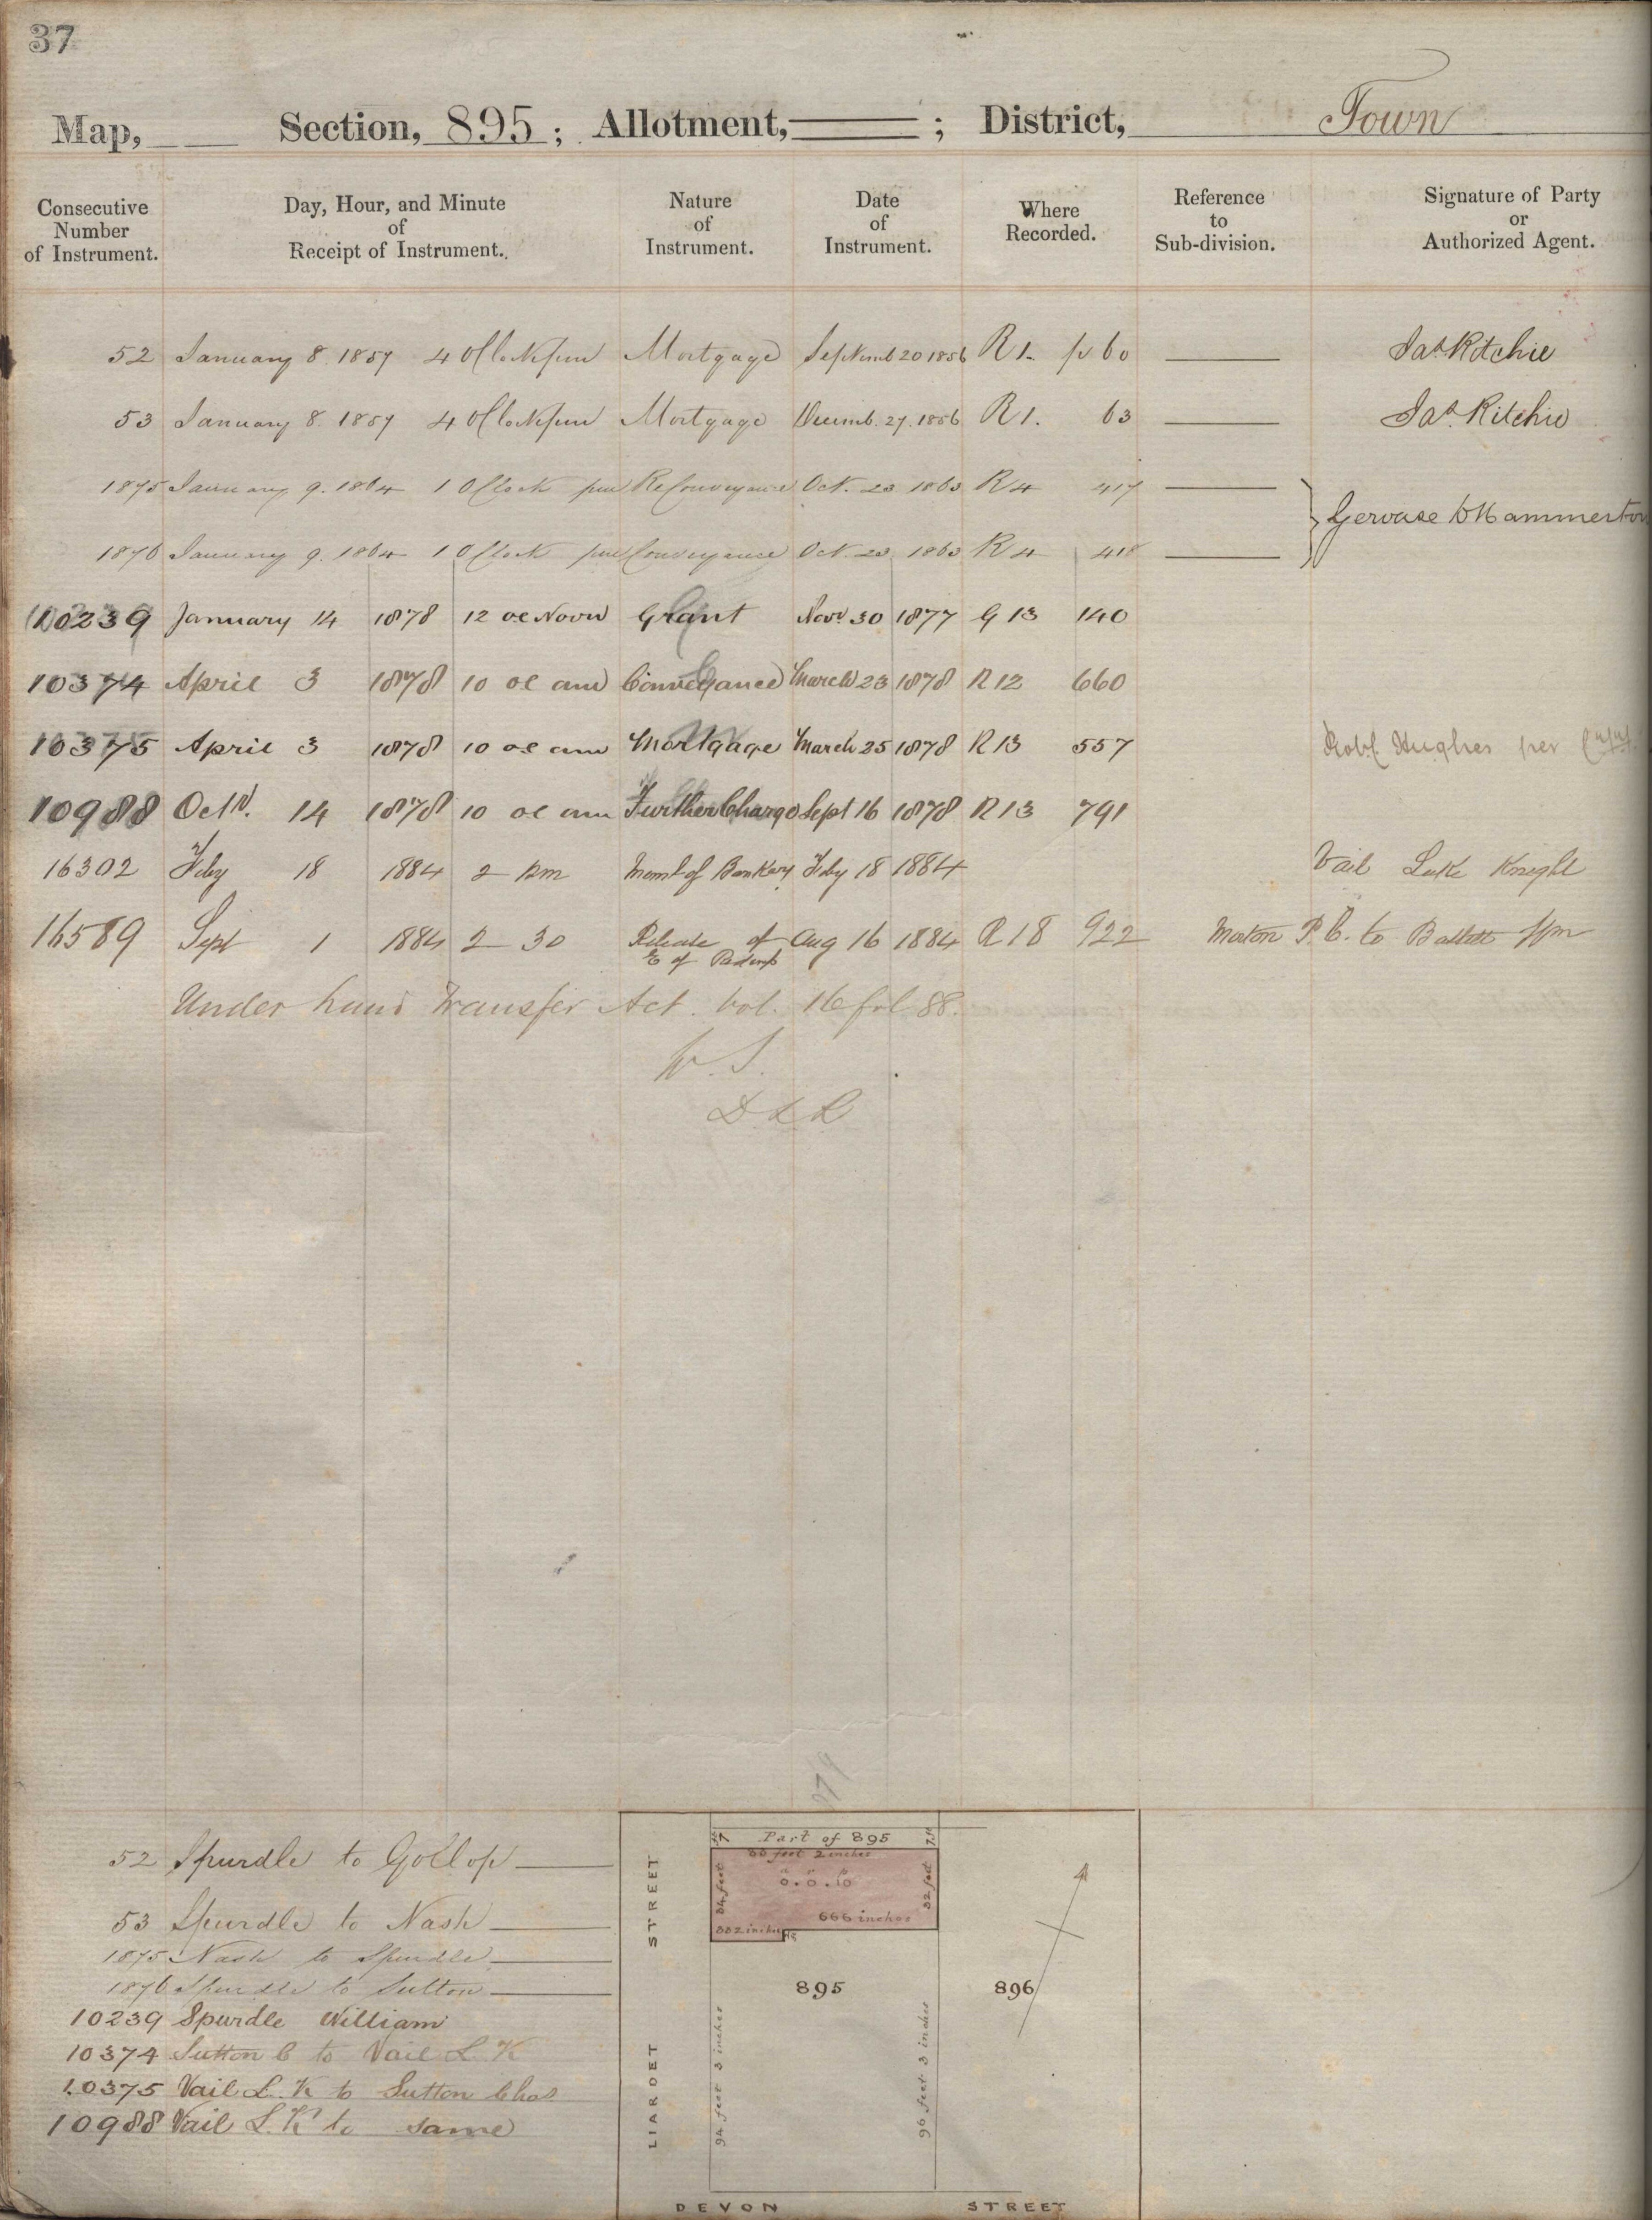 37
Map, Section, 895; Allotment, ; District, Town
Consecutive Number of Instrument.
Day, Hour, and Minute of Receipt of Instrument.
Nature of Instrument.
Date of Instrument.
Where Recorded.
Reference to Sub-division.
Signature of Party or Authorized Agent.
52 January 8. 1857 4 OClock pm Mortgage Septemb 20 1856 R 1. p 60 Jas Ritchie
53 January 8. 1857 4 OClock pm Mortgage Decemb. 27. 1856 R 1. 63 Jas. Ritchie
1875 January 9. 1864 1 OClock pm ReConveyance Oct. 23 1863 R 4 417
Gervase D Hammerton
1876 January 9. 1864 1 OClock pm Conveyance Oct. 23 1863 R 4 418
10239 January 14 1878 12 oc Noon Grant Novr 30 1877 G 13 140
10374 April 3 1878 10 oc am Conveyance March 23 1878 R 12 660
10375 April 3 1878 10 oc am Mortgage March 25 1878 R 13 557 Robt Hughes per
10988 Octr. 14 1878 10 oc am Further Charge Sept 16 1878 R 13 791
16302 Feby 18 1884 2 pm Meml of Bankcy Feby 18 1884 Vail Luke Knight
16589 Sept 1 1884 2 30 Release of E of Redemp Aug 16 1884 R 18 922 to
Under Land Transfer Act. Vol. 16 fol 88.
W. S.
D L R
52 Spurdle to Gollop
53 Spurdle to Nash
1875 Nash to Spurdle
1876 Spurdle to Sutton
10239 Spurdle William
10374 Sutton C to Vail L. K
10375 Vail L. K to Sutton Chas
10988 Vail L. K to same
Part of 895
88 feet 2 inches
0. 0. 10
84 feet
82 feet
666 inches
895
896
94 feet 3 inches
96 feet 3 inches
LIARDET STREET
DEVON STREET